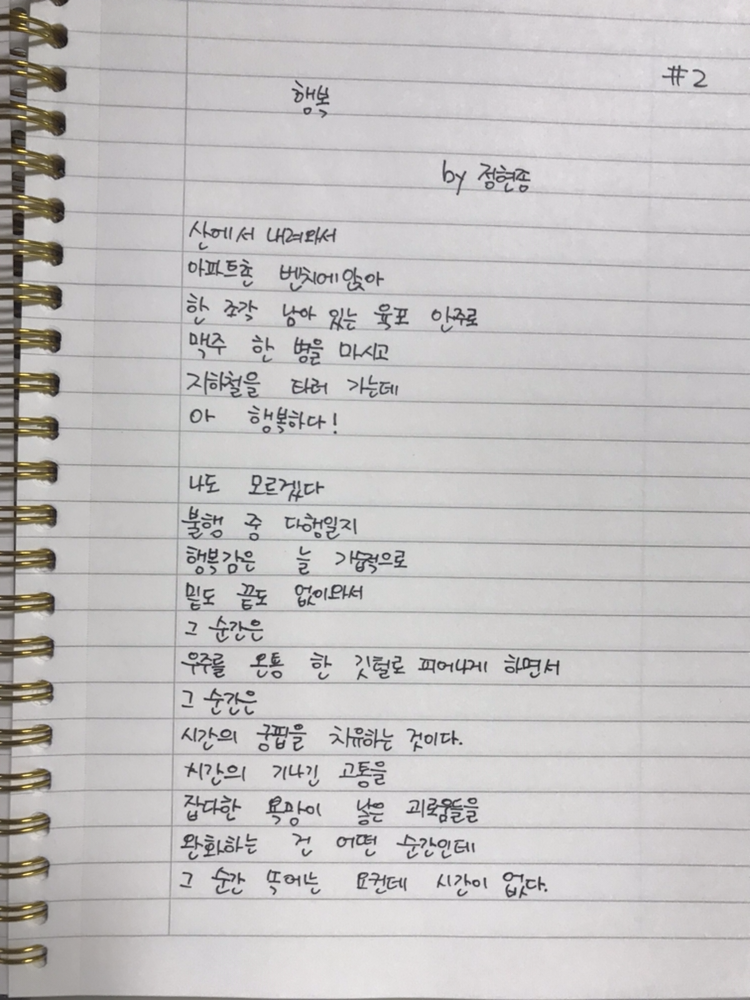 #2
행복
by 정현종
산에서 내려와서
아파트촌 벤치에 앉아
한 조각 남아 있는 육포 안주로
맥주 한 병을 마시고
지하철을 타러 가는데
아 행복하다!
나도 모르겠다
불행 중 다행일지
행복감은 늘 기습적으로
밑도 끝도 없이 와서
그 순간은
우주를 온통 한 깃털로 피어나게 하면서
그 순간은
시간의 궁핍을 치유하는 것이다.
시간의 기나긴 고통을
잡다한 욕망이 낳은 괴로움들을
완화하는 건 어떤 순간인데
그 순간 속에는 요컨데 시간이 없다.